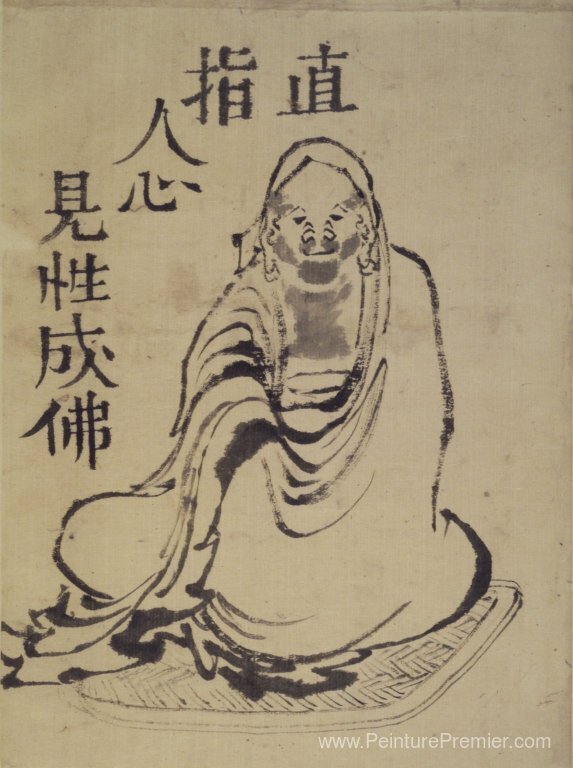 直指
人心
見性成佛
www.PeinturePremier.com